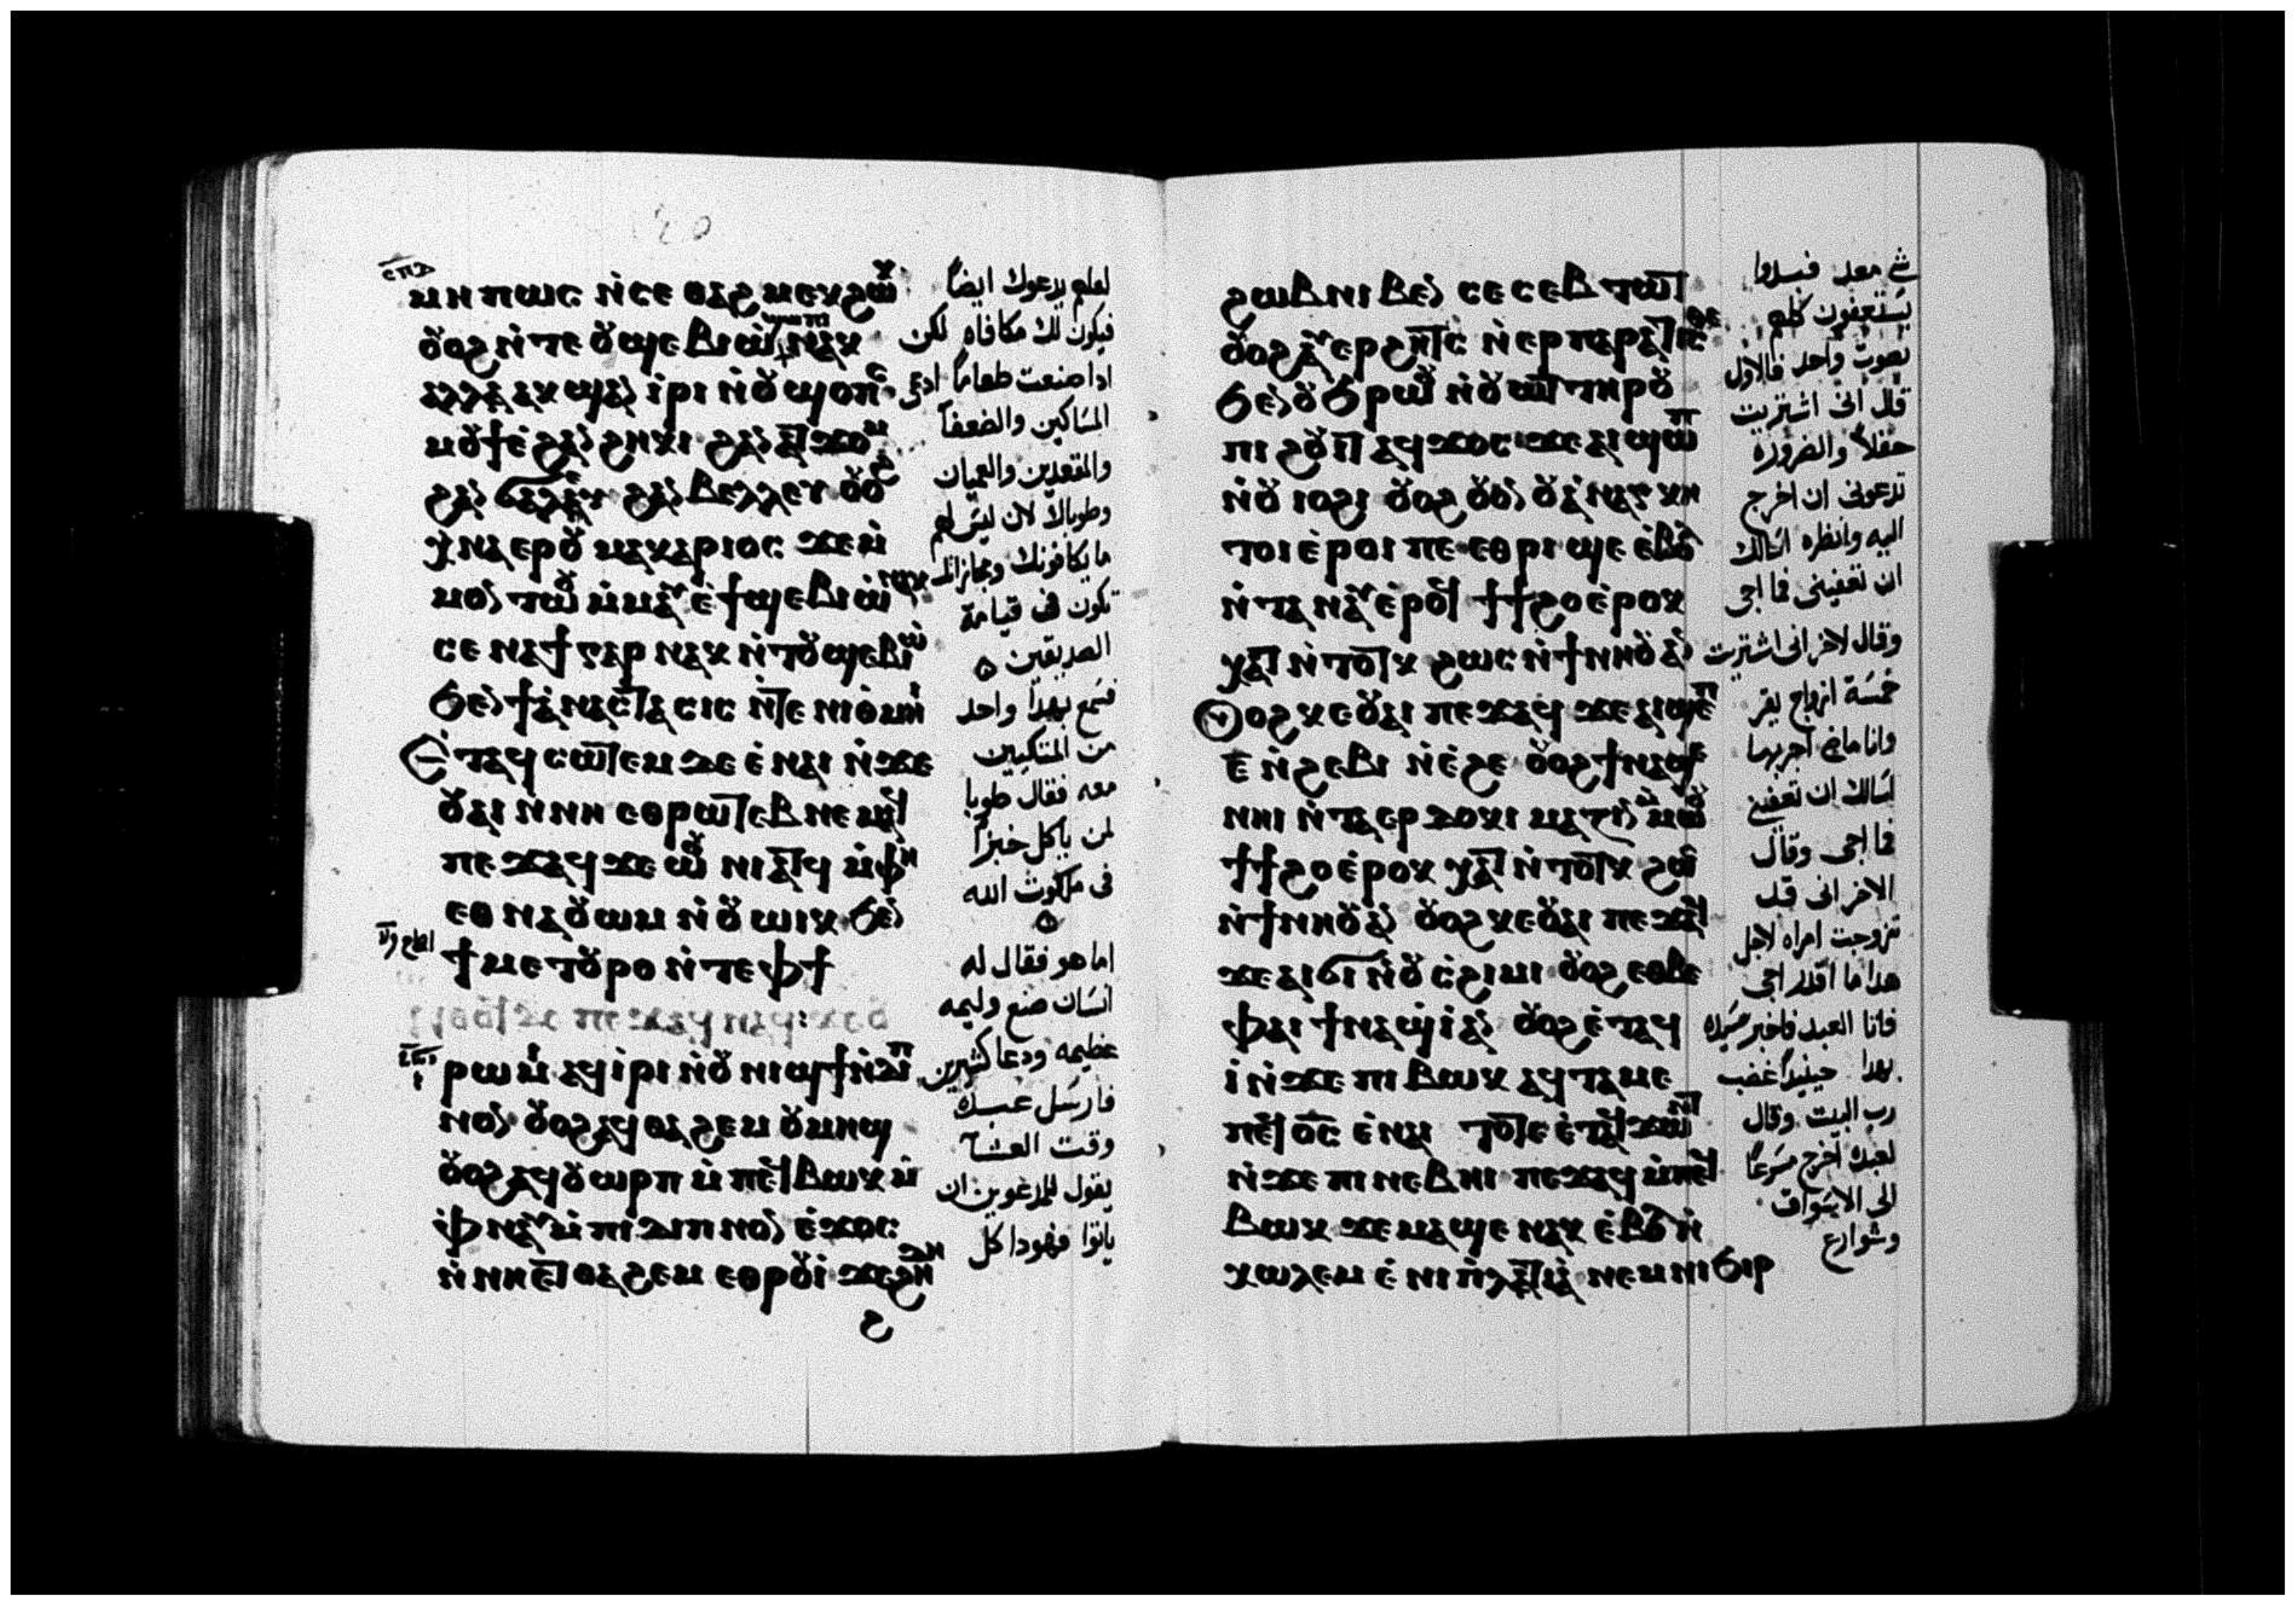 ⲙⲏⲡⲱⲥ ⲛ̇ⲥⲉ ⲑⲁϩⲙⲉⲕϩⲱ
ⲟⲩⲟϩ ⲛ̇ⲧⲉ ⲟⲩϣⲉⲃⲓⲱ̇ ⲛⲁⲕ
ⲁⲗⲗⲁ ⲁⲕϣⲁⲛ ⲓⲣⲓ ⲛ̇ⲟⲩϣⲟⲡⲥ
ⲙⲟⲩϯ ⲉ̇ϩⲁⲛ ϩⲏⲕⲓ ϩⲁⲛ ⲁⲧϫⲟⲙ
ϩⲁⲛ ϭⲁⲗⲉⲩ ϩⲁⲛ ⲃⲉⲗⲗⲉⲩ ⲟⲩⲟϩ
ⲭ̇ⲛⲁⲉⲣⲟⲩ ⲙⲁⲕⲁⲣⲓⲟⲥ ϫⲉ ⲙ̇
ⲙⲟⲛ ⲧⲱⲟⲩ ⲙ̇ⲙⲁⲩ ⲉ̇ϯϣⲉⲃⲓⲱ̇ ⲛⲁⲕ
ⲥⲉ ⲛⲁϯ ⲅⲁⲣ ⲛⲁⲕ ⲛ̇ⲧⲟⲩϣⲉⲃⲓⲱ̇
ϧⲉⲛ ϯⲁ̇ⲛⲁⲥⲧⲁⲥⲓⲥ ⲛ̇ⲧⲉ ⲛⲓⲑ̇ⲙⲏⲓ
Ⲉ̇ⲧⲁϥⲥⲱⲧⲉⲙ ⲇⲉ ⲉ̇ⲛⲁⲓ ⲛ̇ϫⲉ
ⲟⲩⲁⲓ ⲛ̇ⲛⲏ ⲉⲑⲣⲱⲧⲉⲃ ⲛⲉⲙⲁϥ
ⲡⲉϫⲁϥ ϫⲉ ⲱⲟⲩ ⲛⲓⲁⲧϥ ⲙ̇ⲫⲏ
ⲉⲑⲛⲁⲟⲩⲱⲙ ⲛ̇ⲟⲩⲱⲓⲕ ϧⲉⲛ
ϯⲙⲉⲧⲟⲩⲣⲟ ⲛ̇ⲧⲉ ⲫϯ
ⲣⲱⲙⲓ ⲁϥⲓ̇ⲣⲓ ⲛ̇ⲟⲩⲛⲓϣϯ ⲛ̇ⲇⲓⲡ
ⲛⲟⲛ ⲟⲩⲟϩ ⲁϥⲑⲁϩⲉⲙ ⲟⲩⲙⲏϣ
ⲟⲩⲟϩ ⲁϥⲟⲩⲱⲣⲡ ⲙ̇ⲡⲉϥⲃⲱⲕ ⲙ̇
ⲫⲛⲁⲩ ⲙ̇ⲡⲓⲇⲓⲡⲛⲟⲛ ⲉ̇ϫⲟⲥ
ⲛ̇ⲛⲏⲉⲧⲑⲁϩⲉⲙ ⲉⲑⲣⲟⲩⲓ̇ ϫⲉ ϩⲏ
لعلهم يدعوك ايضاً
فيكون لك مكافاه لكن
اذا صنعت طعاماً ادعي
المساكين والضعفا
والمقعدين والعميان
وطوباك لان ليس لهم
ما يكافونك ومجازاتك
تكون فى قيامة
الصديقين
فسمع بهدا واحد
من المتكيين
معه فقال طوبا
لمن ياكل خبزاً
فى ملكوت الله
اما هو فقال له
انسان صنع وليمه
عظيمه ودعا كثيرين
فارسل عبده
وقت العشآ
يقول للمدعوين ان
ياتوا فهودا كل
ϩⲱⲃ ⲛⲓⲃⲉⲛ ⲥⲉⲥⲉⲃⲧⲱⲧ
ⲟⲩⲟϩ ⲁⲩⲉⲣϩⲏⲧⲥ ⲛ̇ⲉⲣⲡⲁⲣⲁⲓⲧⲓⲥⲑⲉ
ϧⲉⲛ ⲟⲩϧⲣⲱⲟⲩ ⲛ̇ⲟⲩⲱⲧ ⲧⲏⲣⲟⲩ
ⲡⲓϩⲟⲩⲓⲧ ⲁϥϫⲟⲥ ϫⲉ ⲁⲓϣⲱⲡ
ⲛ̇ⲟⲩⲓⲟϩⲓ ⲟⲩⲟϩ ⲟⲩⲟⲛ ⲟⲩⲁ̇ⲛⲁⲅⲕⲏ
ⲧⲟⲓ ⲉ̇ⲣⲟⲓ ⲡⲉ ⲉⲑⲣⲓϣⲉ ⲉ̇ⲃⲟⲗ
ⲛ̇ⲧⲁⲛⲁⲩ ⲉ̇ⲣⲟϥ ϯϯϩⲟ ⲉ̇ⲣⲟⲕ
ⲭⲁⲧ ⲛ̇ⲧⲟⲧⲕ ϩⲱⲥ ⲛ̇ϯⲛⲏⲟⲩ ⲁⲛ
Ⲟⲩⲟϩ ⲕⲉⲟⲩⲁⲓ ⲡⲉϫⲁϥ ϫⲉ ⲁⲓϣⲉⲡ
ⲉ̄ ⲛ̇ϩⲉⲃⲓ ⲛ̇ⲉ̇ϩⲉ ⲟⲩⲟϩ ϯⲛⲁϣⲉ
ⲛⲏⲓ ⲛ̇ⲧⲁⲉⲣⲇⲟⲕⲓⲙⲁⲍⲓⲛ ⲙ̇ⲙⲱⲟⲩ
ϯϯϩⲟ ⲉ̇ⲣⲟⲕ ⲭⲁⲧ ⲛ̇ⲧⲟⲧⲕ ϩⲱⲥ
ⲛ̇ϯⲛⲏⲟⲩ ⲁⲛ ⲟⲩⲟϩ ⲕⲉⲟⲩⲁⲓ ⲡⲉϫⲁϥ
ϫⲉ ⲁⲓϭⲓ ⲛ̇ⲟⲩⲥ̇ϩⲓⲙⲓ ⲟⲩⲟϩ ⲉⲑⲃⲉ
ⲫⲁⲓ ϯⲛⲁϣⲓ̇ ⲁⲛ ⲟⲩⲟϩ ⲉ̇ⲧⲁϥ
ⲓ̇ ⲛ̇ϫⲉ ⲡⲓⲃⲱⲕ ⲁϥⲧⲁⲙⲉ
ⲡⲉϥⲟ̅ⲥ̅ ⲉ̇ⲛⲁⲓ ⲧⲟⲧⲉ ⲉ̇ⲧⲁϥϫⲱⲛⲧ
ⲛ̇ϫⲉ ⲡⲓⲛⲉⲃⲏⲓ ⲡⲉϫⲁϥ ⲙ̇ⲡⲉϥ
ⲃⲱⲕ ϫⲉ ⲙⲁϣⲉ ⲛⲁⲕ ⲉ̇ⲃⲟⲗ ⲛ̇
ⲭⲱⲗⲉⲙ ⲉ̇ⲛⲓⲡ̇ⲗⲁⲧⲓⲁ̇ ⲛⲉⲙ ⲛⲓϧⲓⲣ
شي معد فبدوا
يستعفون كلهم
بصوت واحد فالاول
قال انى اشتريت
حقلاً والضروره
تدعونى ان اخرج
اليه وانظره اسالك
ان تعفينى فما اجى
وقال لاخر انى اشتريت
خمسة ازواج بقر
وانا ماضى اجربها
اسالك ان تعفينى
فما اجى وقال
الاخر انى قد
تزوجت امراه لاجل
هدا ما اقدر اجى
فاتا العبد فاخبر سيده
بهدا حينيداً غضب
رب البيت وقال
لعبده اخرج مسرعاً
الى الاسواق
وشوارع